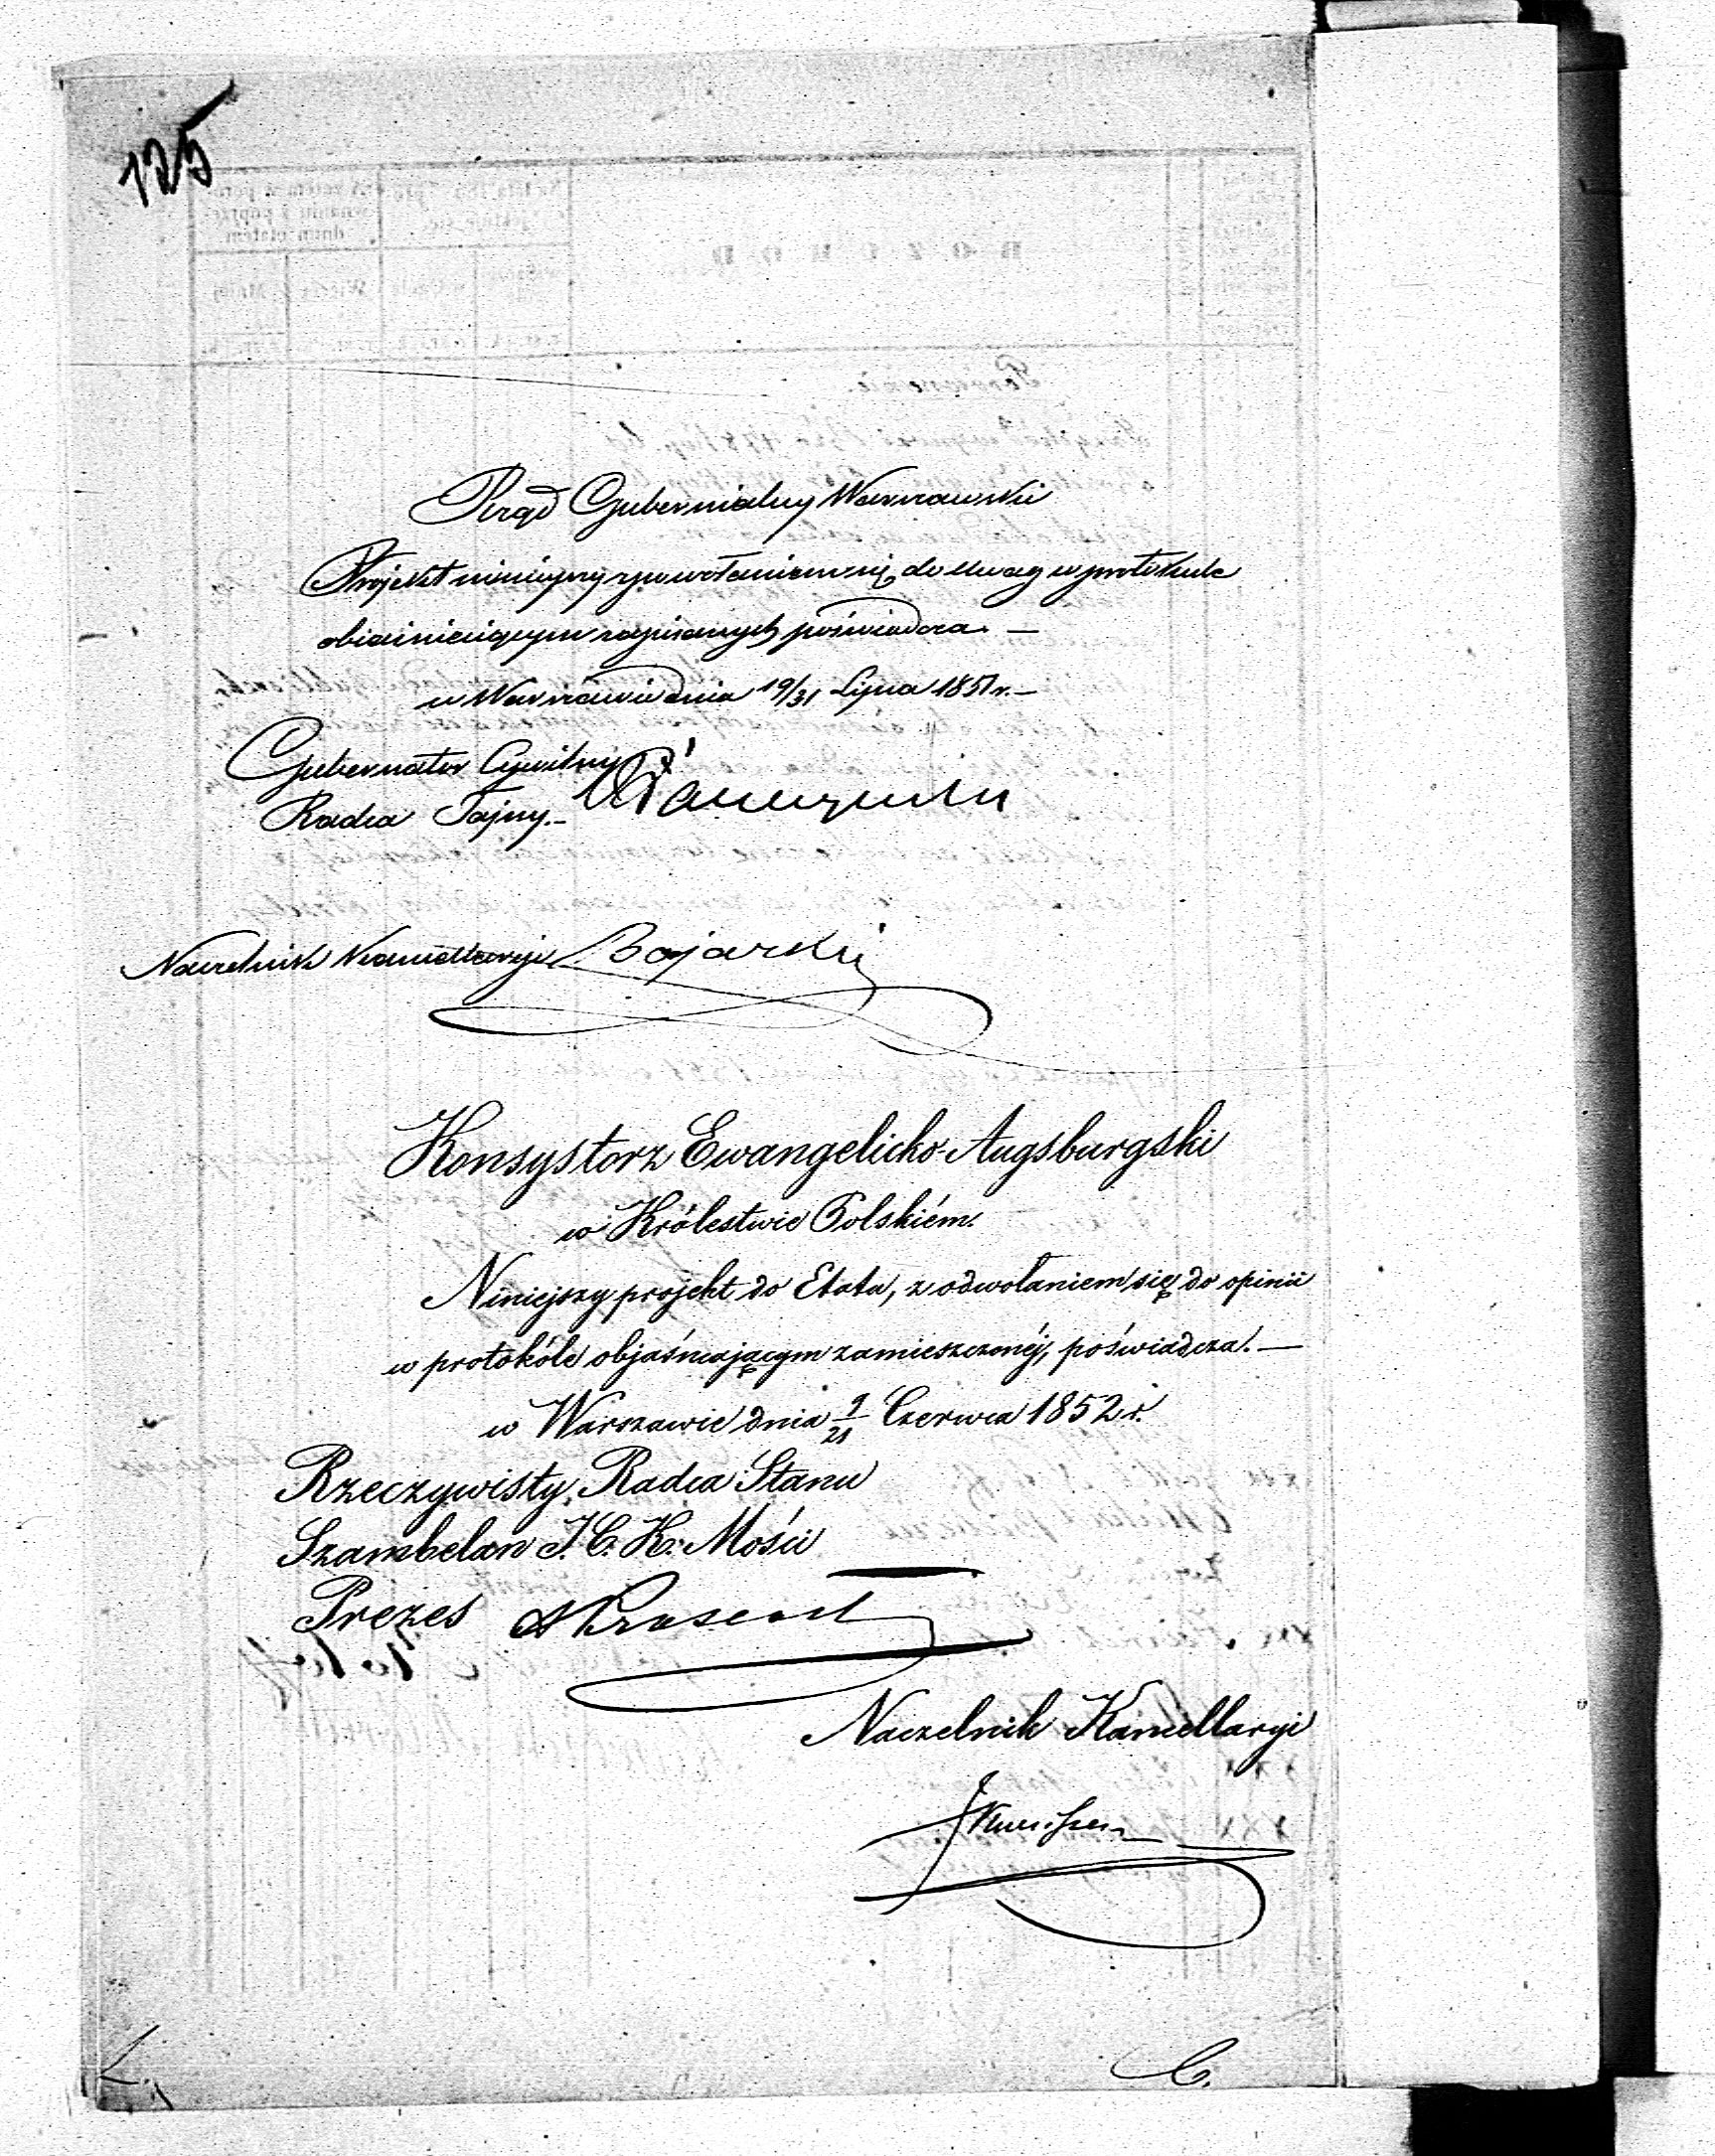 125
Rząd Gubernialny Warszawski
Projekt niniejszy z powołaniem się do uwag w protokule
obiaśniaiącym zapisanych poświadcza. —
w Warszawie dnia 19/31 Lipca 1851 r. —
Gubernator Cywilny
Radca Tajny. –
Naczelnik Kancellaryi Bojarski
Konsystorz Ewangelicko-Augsburgski
w Królestwie Polskiém.
Niniejszy projekt do Etatu, z odwołaniem się do opinii
w protokóle objaśniającym zamieszczonéj, poświadcza. —
w Warszawie dnia 9/21 Czerwca 1852 r.
Rzeczywisty Radca Stanu
Szambelan J. C. K. Mości
Prezes
Naczelnik Kancellaryi
C.